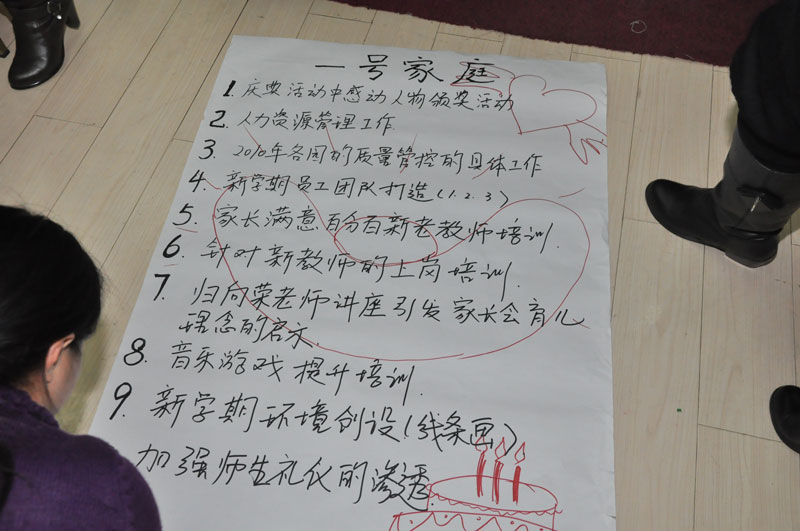 一号家庭
1. 庆典活动中感动人物颁奖活动
2. 人力资源管理工作
3 2010年各园的质量管控的具体工作
4. 新学期员工团队打造(1.2.3)
5. 家长满意百分百新老教师培训.
6. 针对新教师的上岗培训.
7 归向荣老师讲座引发家长会育儿
理念的启示.
8. 音乐游戏提升培训.
9. 新学期环境创设(线条画)
加强师生礼仪的渗透